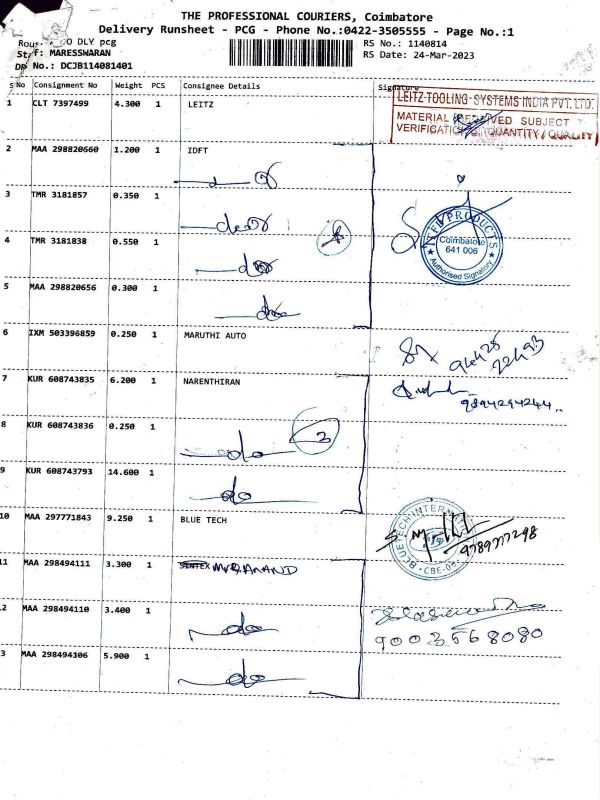 THE PROFESSIONAL COURIERS, Coimbatore
Delivery Runsheet - PCG - Phone No.:0422-3505555 - Page No.:1
DLY pcg
RS No.: 1140814
MARESSWARAN
RS Date: 24-Mar-2023
No.: DCJB114081401
S No Consignment No Weight PCS Consignee Details Signature
1 CLT 7397499 4.300 1 LEITZ
LEITZ-TOOLING-SYSTEMS INDIA PVT. LTD.
MATERIAL RECEIVED SUBJECT T
VERIFICATION QUANTITY / QUALITY
2 MAA 298820660 1.200 1 IDFT
do
3 TMR 3181857 0.350 1
do
4 TMR 3181838 0.550 1
do
PRODUCTS
Coimbatore
641 006
Authorised Signatory
5 MAA 298820656 0.300 1
do
6 IXM 503396859 0.250 1 MARUTHI AUTO
7 KUR 608743835 6.200 1 NARENTHIRAN
9894294244
8 KUR 608743836 0.250 1
do 3
9 KUR 608743793 14.600 1
do
10 MAA 297771843 9.250 1 BLUE TECH
BLUE TECH INTERNAT
CBE-0
9789777298
11 MAA 298494111 3.300 1 SENTEX MVB ANAND
2 MAA 298494110 3.400 1
do
9003568080
3 MAA 298494106 5.900 1
do